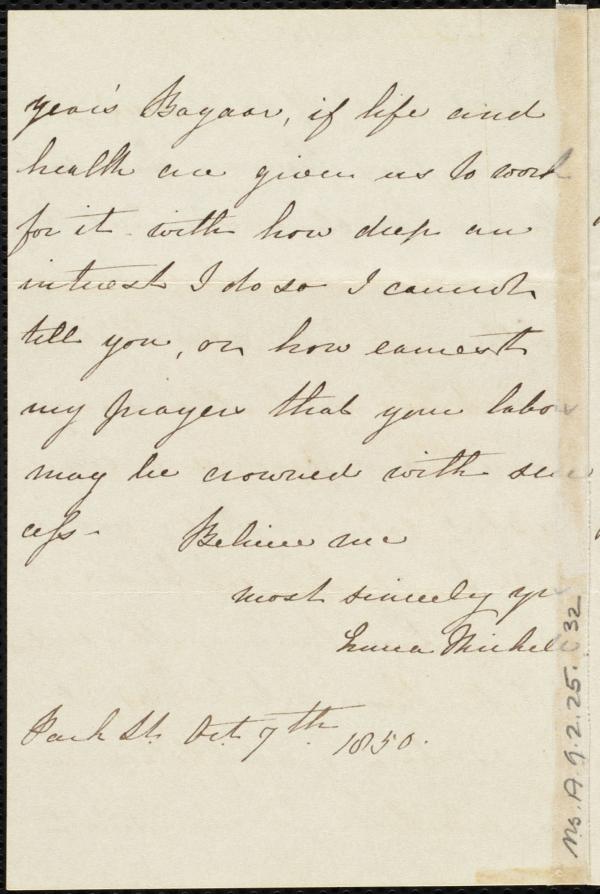 year's Bazaar, if life and
health are given us to work
for it - with how deep an
interest I do so I cannot
tell you, or how earnest
my prayer that your labor
may be crowned with suc
cess - Believe me
most sincerely yr
Emma Michell
Park St. Oct. 7th 1850.
Ms. A. 9. 2. 25. 32